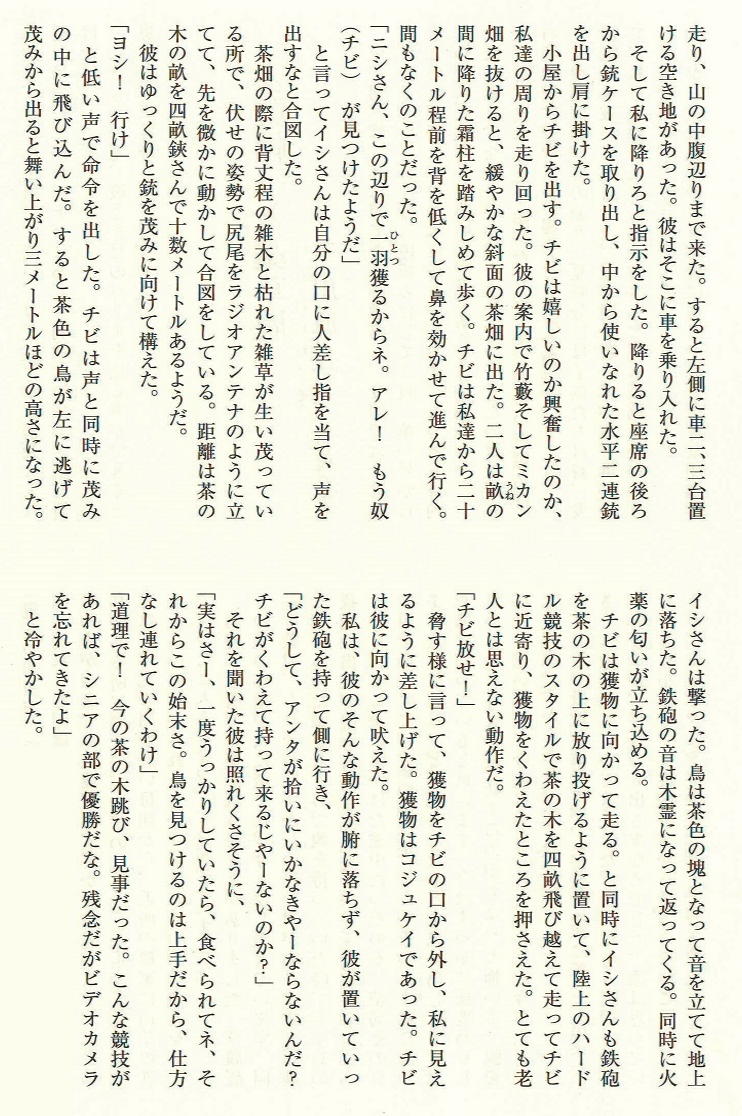 走り、山の中腹辺りまで来た。すると左側に車二、三台置
ける空き地があった。彼はそこに車を乗り入れた。
そして私に降りろと指示をした。降りると座席の後ろ
から銃ケースを取り出し、中から使いなれた水平二連銃
を出し肩に掛けた。
小屋からチビを出す。チビは嬉しいのか興奮したのか、
私達の周りを走り回った。彼の案内で竹藪そしてミカン
畑を抜けると、緩やかな斜面の茶畑に出た。二人は畝の
うね
間に降りた霜柱を踏みしめて歩く。チビは私達から二十
メートル程前を背を低くして鼻を効かせて進んで行く。
間もなくのことだった。
「ニシさん、この辺りで一羽獲るからネ。アレ！　もう奴
ひとつ
（チビ）　が見つけたようだ」
と言ってイシさんは自分の口に人差し指を当て、声を
出すなと合図した。
茶畑の際に背丈程の雑木と枯れた雑草が生い茂ってい
る所で、伏せの姿勢で尻尾をラジオアンテナのように立
てて、先を微かに動かして合図をしている。距離は茶の
木の畝を四畝鋏さんで十数メートルあるようだ。
彼はゆっくりと銃を茂みに向けて構えた。
「ヨシ！　行け」
と低い声で命令を出した。チビは声と同時に茂み
の中に飛び込んだ。すると茶色の鳥が左に逃げて
茂みから出ると舞い上がり三メートルほどの高さになった。
イシさんは撃った。鳥は茶色の塊となって音を立てて地上
に落ちた。鉄砲の音は木霊になって返ってくる。同時に火
薬の匂いが立ち込める。
チビは獲物に向かって走る。と同時にイシさんも鉄砲
を茶の木の上に放り投げるように置いて、陸上のハード
ル競技のスタイルで茶の木を四畝飛び越えて走ってチビ
に近寄り、獲物をくわえたところを押さえた。とても老
人とは思えない動作だ。
「チビ放せ！」
脅す様に言って、獲物をチビの口から外し、私に見え
るように差し上げた。獲物はコジュケイであった。チビ
は彼に向かって吠えた。
私は、彼のそんな動作が腑に落ちず、彼が置いていっ
た鉄砲を持って側に行き、
「どうして、アンタが拾いにいかなきゃーならないんだ？
チビがくわえて持って来るじゃーないのか？」
それを聞いた彼は照れくさそうに、
「実はさー、一度うっかりしていたら、食べられてネ、そ
れからこの始末さ。鳥を見つけるのは上手だから、仕方
なし連れていくわけ」
「道理で！　今の茶の木跳び、見事だった。こんな競技が
あれば、シニアの部で優勝だな。残念だがビデオカメラ
を忘れてきたよ」
と冷やかした。